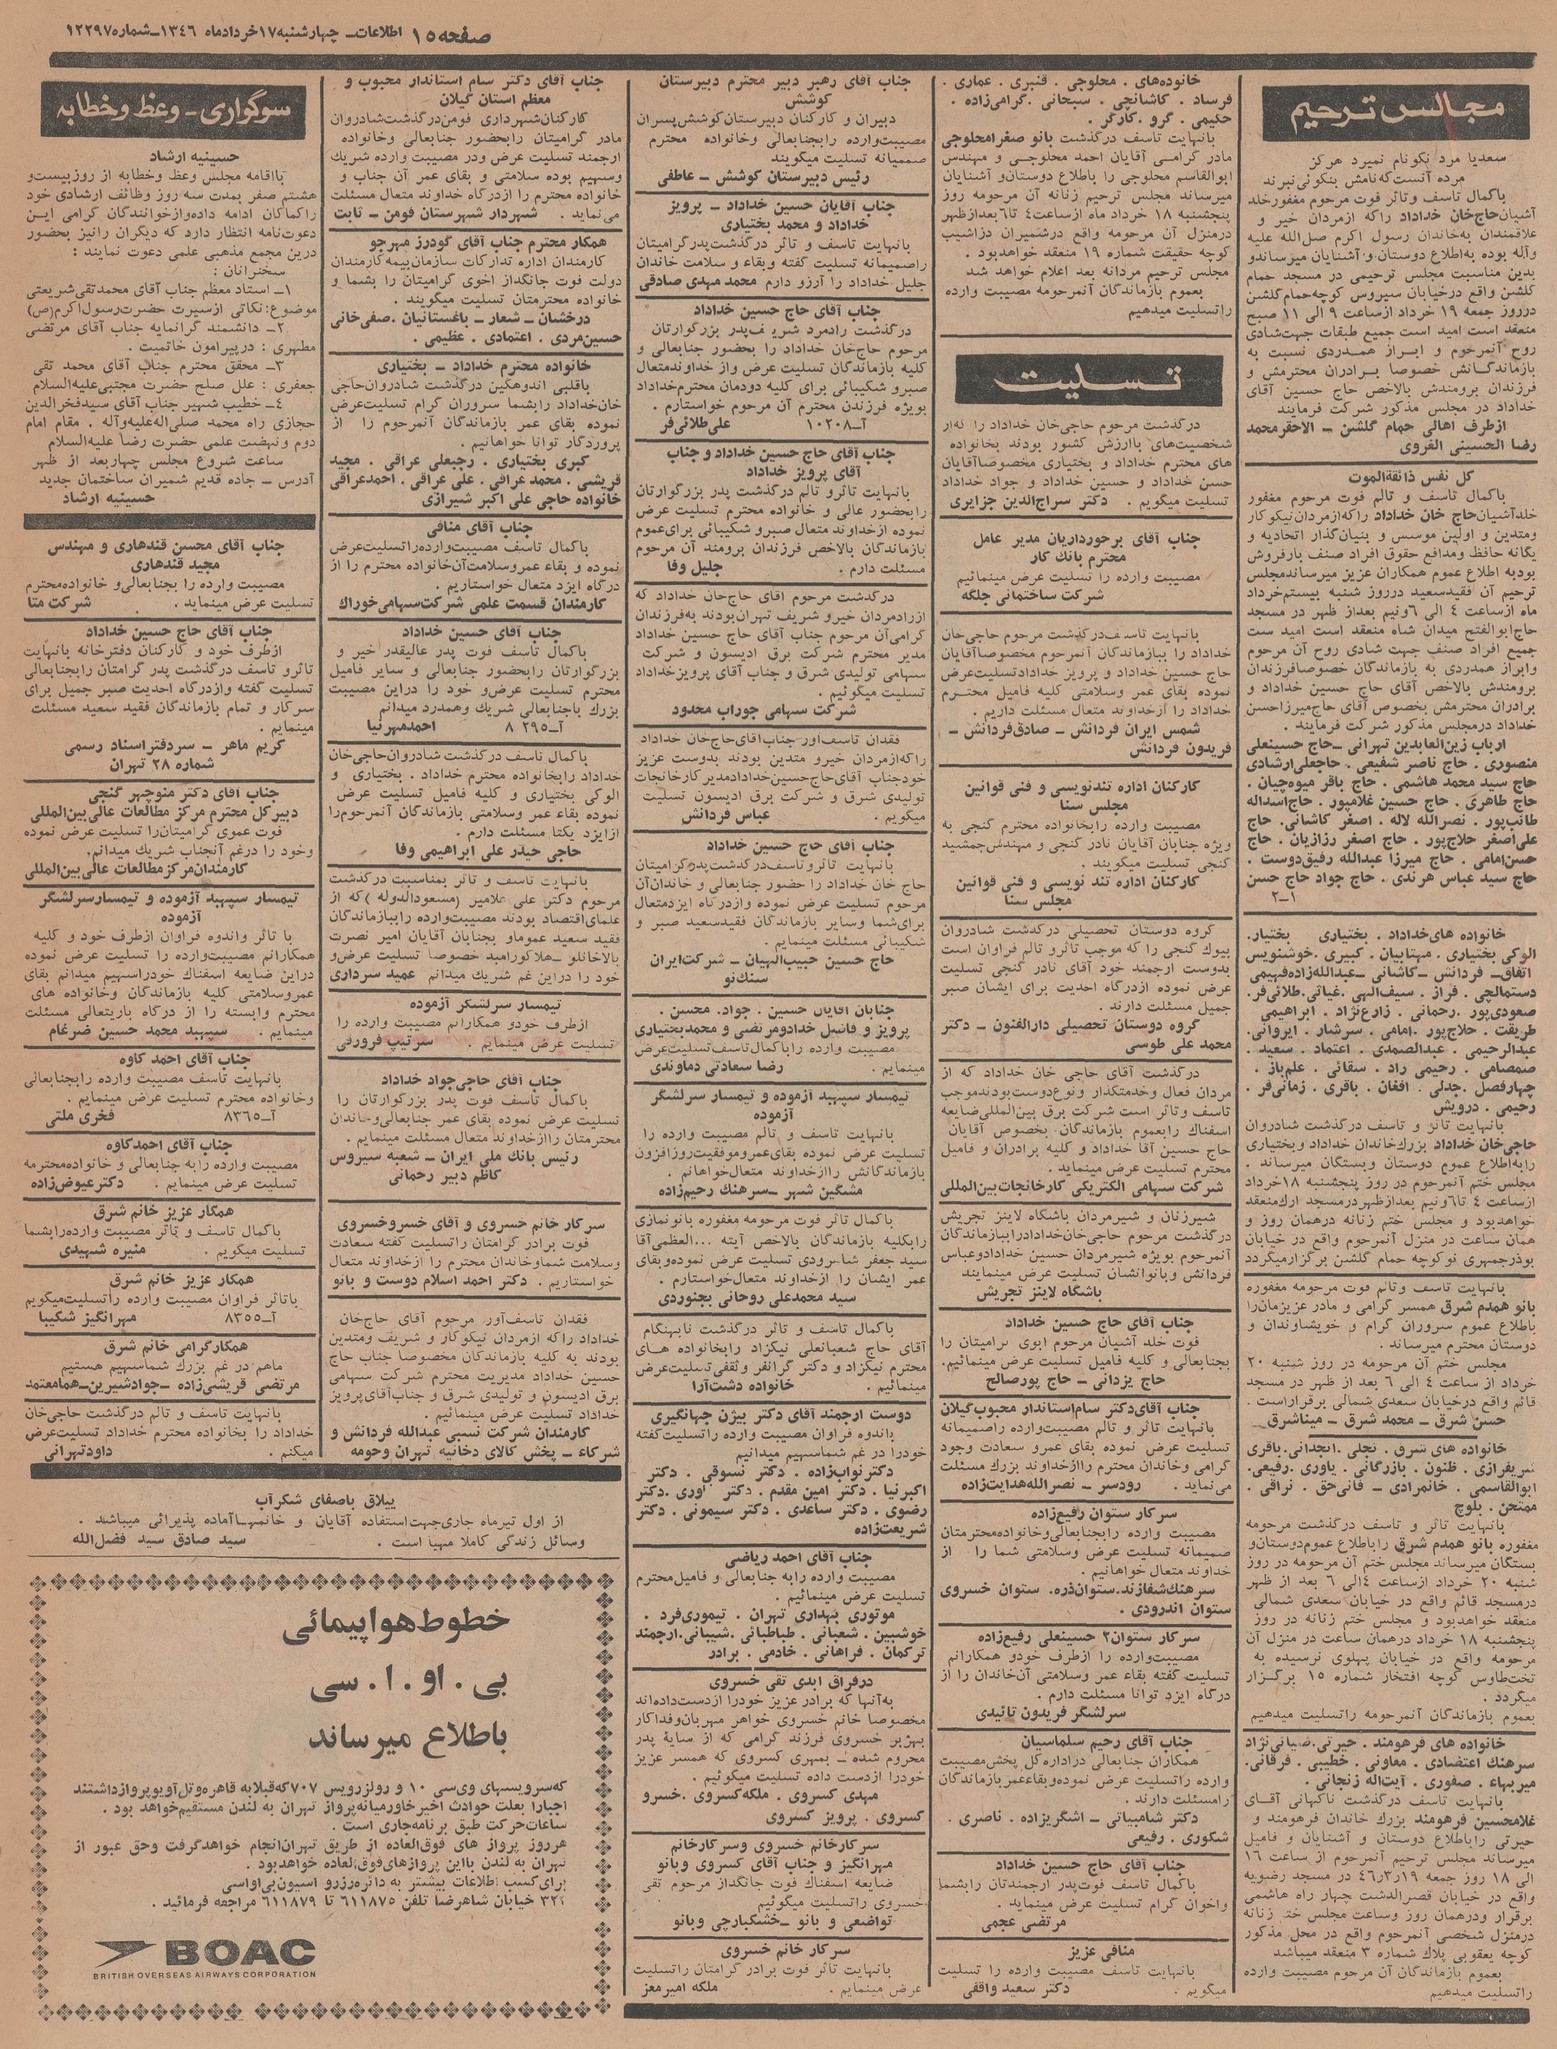 صفحه ۱۵ اطلاعات ـ چهارشنبه ۱۷ خردادماه ۱۳۴۶ ـ شماره ۱۲۲۹۷
مجالس ترحیم
سعدیا مرد نکونام نمیرد هرگز
مرده آنست که نامش بنکوئی نبرند
باکمال تاسف و تاثر فوت مرحوم مغفور خلد
آشیان حاج خان خداداد را که از مردان خیر و
علاقمندان به خاندان رسول اکرم صل‌الله علیه
وآله بوده به اطلاع دوستان و آشنایان میرساند و
بدین مناسبت مجلس ترحیمی در مسجد حمام
گلشن واقع در خیابان سیروس کوچه حمام گلشن
در روز جمعه ۱۹ خرداد از ساعت ۹ الی ۱۱ صبح
منعقد است امید است جمیع طبقات جهت شادی
روح آنمرحوم و ابراز همدردی نسبت به
بازماندگانش خصوصا برادران محترمش و
فرزندان برومندش بالاخص حاج حسین آقای
خداداد در مجلس مذکور شرکت فرمایند
از طرف اهالی حمام گلشن ـ الاحقر محمد
رضا الحسینی الغروی
کل نفس ذائقة الموت
باکمال تاسف و تالم فوت مرحوم مغفور
خلد آشیان حاج خان خداداد را که از مردان نیکوکار
ومتدین و اولین موسس و بنیان گذار اتحادیه و
یگانه حافظ ومدافع حقوق افراد صنف بارفروش
بود به اطلاع عموم همکاران عزیز میرساند مجلس
ترحیم آن فقید سعید در روز شنبه بیستم خرداد
ماه از ساعت ۴ الی ۶ و نیم بعد از ظهر در مسجد
حاج ابوالفتح میدان شاه منعقد است امید ست
جمیع افراد صنف جهت شادی روح آن مرحوم
وابراز همدردی به بازماندگان خصوصا فرزندان
برومندش بالاخص آقای حاج حسین خداداد و
برادران محترمش بخصوص آقای حاج میرزا حسن
خداداد در مجلس مذکور شرکت فرمایند .
ارباب زین‌العابدین تهرانی ـ حاج حسینعلی
منصوری . حاج ناصر شفیعی . حاجعلی ارشادی
حاج سید محمد هاشمی . حاج باقر میوه‌چیان .
حاج طاهری . حاج حسین غلامپور . حاج اسداله
طالب‌پور . نصرالله لاله . اصغر کاشانی . حاج
علی‌اصغر حلاج‌پور . حاج اصغر رزازیان . حاج
حسن‌امامی . حاج میرزا عبدالله رفیق‌دوست .
حاج سید عباس هرندی . حاج جواد حاج حسن
۱ـ۲
خانواده های خداداد . بختیاری بختیار.
الوکی بختیاری . مهتابیان . کبیری . خوشنویس
اتفاق ـ فردانش ـ کاشانی ـ عبدالله زاده فهیمی
دستمالچی . فراز . سیف‌الهی . غیاثی . طلائی‌فر .
صعودی‌پور . رحمانی . زارع‌نژاد . ابراهیمی
طریقت . حلاج‌پور . امامی . سرشار . ایروانی .
عبدالرحیمی . عبدالصمدی . اعتماد . سعید .
صمصامی . رحیمی راد . سقائی . علم‌باز .
چهارفصل . جدلی . افغان . باقری . زمانی‌فر .
رحیمی . درویش
بانهایت تاثر و تاسف درگذشت شادروان
حاجی‌خان خداداد بزرگ خاندان خداداد وبختیاری
را به اطلاع عموم دوستان وبستگان میرساند .
مجلس ختم آنمرحوم در روز پنجشنبه ۱۸ خرداد
از ساعت ۴ تا ۶ ونیم بعد از ظهر در مسجد ارك منعقد
خواهد بود و مجلس ختم زنانه در همان روز و
همان ساعت در منزل آنمرحوم واقع در خیابان
بوذرجمهری نو کوچه حمام گلشن برگزار میگردد
بانهایت تاسف وتالم فوت مرحومه مغفوره
بانو همدم شرق همسر گرامی و مادر عزیزمان را
باطلاع عموم سروران گرام و خویشاوندان و
دوستان محترم میرساند .
مجلس ختم آن مرحومه در روز شنبه ۲۰
خرداد از ساعت ۴ الی ۶ بعد از ظهر در مسجد
قائم واقع در خیابان سعدی شمالی برقرار است .
حسن شرق ـ محمد شرق ـ میناشرق
خانواده های شرق . تجلی . انجدانی . باقری
شریفرازی . ظنون . بازرگانی . یاوری . رفیعی .
ابوالقاسمی . خانمرادی ـ فانی‌حق . نراقی .
ممتحن . بلوچ
بانهایت تاثر و تاسف درگذشت مرحومه
مغفوره بانو همدم شرق را باطلاع عموم دوستان و
بستگان میرساند مجلس ختم آن مرحومه در روز
شنبه ۲۰ خرداد از ساعت ۴ الی ۶ بعد از ظهر
در مسجد قائم واقع در خیابان سعدی شمالی
منعقد خواهد بود و مجلس ختم زنانه در روز
پنجشنبه ۱۸ خرداد در همان ساعت در منزل آن
مرحومه واقع در خیابان پهلوی نرسیده به
تخت‌طاوس کوچه افتخار شماره ۱۵ برگزار
میگردد .
بعموم بازماندگان آنمرحومه را تسلیت میدهیم
خانواده های فرهومند . حیرتی . ضیائی‌نژاد
سرهنك اعتضادی . معاونی . خطیبی . فرقانی .
میربهاء . صفوری . آیت‌اله زنجانی .
بانهایت تاسف درگذشت ناگهانی آقـای
غلامحسین فرهومند بزرك خاندان فرهومند و
حیرتی را باطلاع دوستان و آشنایان و فامیل
میرساند مجلس ترحیم آنمرحوم از ساعت ۱۶
الی ۱۸ روز جمعه ۴۶/۳/۱۹ در مسجد رضویه
واقع در خیابان قصرالدشت چهار راه هاشمی
برقرار و در همان روز وساعت مجلس ختم زنانه
در منزل شخصی آنمرحوم واقع در محل مذکور
کوچه یعقوبی پلاك شماره ۳ منعقد میباشد
بعموم بازماندگان آن مرحوم مصیبت وارده
را تسلیت میدهیم
خانوده‌های . محلوجی . قنبری . عماری .
فرساد . کاشانچی . سبحانی . گرامی‌زاده .
حکیمی . گرو . کارگر .
بانهایت تاسف درگذشت بانو صغرا محلوجی
مادر گرامی آقایان احمد محلوجی و مهندس
ابوالقاسم محلوجی را باطلاع دوستان و آشنایان
میرساند مجلس ترحیم زنانه آن مرحومه روز
پنجشنبه ۱۸ خرداد ماه از ساعت ۴ تا ۶ بعد از ظهر
در منزل آن مرحومه واقع در شمیران دزاشیب
کوچه حقیقت شماره ۱۹ منعقد خواهد بود .
مجلس ترحیم مردانه بعد اعلام خواهد شد
بعموم بازماندگان آنمرحومه مصیبت وارده
را تسلیت میدهیم
تسلیت
درگذشت مرحوم حاجی‌خان خداداد را که از
شخصیت‌های باارزش کشور بودند بخانواده
های محترم خداداد و بختیاری مخصوصا آقایان
حسن خداداد و حسین خداداد و جواد خداداد
تسلیت میگویم . دکتر سراج‌الدین جزایری
جناب آقای برخورداریان مدیر عامل
محترم بانك کار
مصیبت وارده را تسلیت عرض مینمائیم
شرکت ساختمانی جلگه
بانهایت تاسف درگذشت مرحوم حاجی‌خان
خداداد را ببازماندگان آنمرحوم مخصوصا آقایان
حاج حسین خداداد و پرویز خداداد تسلیت عرض
نموده بقای عمر وسلامتی کلیه فامیل محترم
خداداد را از خداوند متعال مسئلت داریم .
شمس ایران فردانش ـ صادق فردانش ـ
فریدون فردانش
کارکنان اداره تندنویسی و فنی قوانین
مجلس سنا
مصیبت وارده را بخانواده محترم گنجی به
ویژه جنابان آقایان نادر گنجی و مهندس جمشید
گنجی تسلیت میگویند .
کارکنان اداره تند نویسی و فنی قوانین
مجلس سنا
گروه دوستان تحصیلی درگذشت شادروان
بیوك گنجی را که موجب تاثر و تالم فراوان است
بدوست ارجمند خود آقای نادر گنجی تسلیت
عرض نموده از درگاه احدیت برای ایشان صبر
جمیل مسئلت دارند .
گروه دوستان تحصیلی دارالفنون ـ دکتر
محمد علی طوسی
درگذشت آقای حاجی خان خداداد که از
مردان فعال وخدمتگذار و نوع دوست بودند موجب
تاسف وتاثر است شرکت برق بین‌المللی ضایعه
اسفناك را بعموم بازماندگان بخصوص آقایان
حاج حسین آقا خداداد و کلیه برادران و فامیل
محترم تسلیت عرض مینماید .
شرکت سهامی الکتریکی کارخانجات بین‌المللی
شیرزنان و شیرمردان باشگاه لاینز تجریش
درگذشت مرحوم حاجی‌خان خداداد را ببازماندگان
آنمرحوم بویژه شیرمردان حسین خداداد و عباس
فردانش و بانوانشان تسلیت عرض مینمایند
باشگاه لاینز تجریش
جناب آقای حاج حسین خداداد
فوت خلد آشیان مرحوم ابوی گرامیتان را
بجنابعالی و کلیه فامیل تسلیت عرض مینمائیم .
حاج یزدانی ـ حاج پورصالح
جناب آقای دکتر سام استاندار محبوب گیلان
بانهایت تاثر و تالم مصیبت وارده را صمیمانه
تسلیت عرض نموده بقای عمر و سعادت وجود
گرامی وخاندان محترم را از خداوند بزرك مسئلت
می‌نماید . رودسر ـ نصرالله هدایت‌زاده
سرکار ستوان رفیع‌زاده
مصیبت وارده را بجنابعالی وخانواده محترمتان
صمیمانه تسلیت عرض وسلامتی شما را از
خداوند متعال خواهانیم .
سرهنك شفازند . ستوان‌ذره . ستوان خسروی
ستوان اندرودی .
سرکار ستوان۲ حسینعلی رفیع‌زاده
مصیبت وارده را از طرف خود و همکارانم
تسلیت گفته بقاء عمر وسلامتی آن خاندان را از
درگاه ایزد توانا مسئلت دارم .
سرلشگر فریدون تائیدی
جناب آقای رحیم سلماسیان
همکاران جنابعالی در اداره کل پخش مصیبت
وارده را تسلیت عرض نموده و بقاء عمر بازماندگان
را مسئلت دارند .
دکتر شامبیاتی ـ اشگریزاده . ناصری .
شکوری . رفیعی
جناب آقای حاج حسین خداداد
باکمال تاسف فوت پدر ارجمندتان را بشما
واخوان گرام تسلیت عرض مینماید .
مرتضی عجمی
منافی عزیز
بانهایت تاسف مصیبت وارده را تسلیت
میگویم . دکتر سعید واقفی
جناب آقای رهبر دبیر محترم دبیرستان
کوشش
دبیران و کارکنان دبیرستان کوشش پسران
مصیبت وارده را بجنابعالی وخانواده محترم
صمیمانه تسلیت میگویند
رئیس دبیرستان کوشش ـ عاطفی
جناب آقایان حسین خداداد ـ پرویز
خداداد و محمد بختیاری
بانهایت تاسف و تاثر درگذشت پدر گرامیتان
را صمیمانه تسلیت گفته وبقاء و سلامت خاندان
جلیل خداداد را آرزو دارم محمد مهدی صادقی
جناب آقای حاج حسین خداداد
درگذشت رادمرد شریف پدر بزرگوارتان
مرحوم حاج‌خان خداداد را بحضور جنابعالی و
کلیه بازماندگان تسلیت عرض و از خداوند متعال
صبر و شکیبائی برای کلیه دودمان محترم خداداد
بویژه فرزندان محترم آن مرحوم خواستارم .
آـ ۱۰۲۰۸ علی طلائی‌فر
جناب آقای حاج حسین خداداد و جناب
آقای پرویز خداداد
بانهایت تاثر و تالم درگذشت پدر بزرگوارتان
را بحضور عالی و خانواده محترم تسلیت عرض
نموده از خداوند متعال صبر و شکیبائی برای عموم
بازماندگان بالاخص فرزندان برومند آن مرحوم
مسئلت دارم . جلیل وفا
درگذشت مرحوم آقای حاج‌خان خداداد که
از رادمردان خیر و شریف تهران بودند به فرزندان
گرامی آن مرحوم جناب آقای حاج حسین خداداد
مدیر محترم شرکت برق ادیسون و شرکت
سهامی تولیدی شرق و جناب آقای پرویز خداداد
تسلیت میگوئیم .
شرکت سهامی جوراب محدود
فقدان تاسف‌آور جناب آقای حاج‌خان خداداد
را که از مردان خیر و متدین بودند بدوست عزیز
خود جناب آقای حاج حسین خداداد مدیر کارخانجات
تولیدی شرق و شرکت برق ادیسون تسلیت
میگویم . عباس فردانش
جناب آقای حاج حسین خداداد
بانهایت تاثر و تاسف درگذشت پدر گرامیتان
حاج خان خداداد را حضور جنابعالی و خاندان آن
مرحوم تسلیت عرض نموده واز درگاه ایزد متعال
برای شما و سایر بازماندگان فقید سعید صبر و
شکیبائی مسئلت مینمایم .
حاج حسین حبیب‌الهیان ـ شرکت ایران
سنك‌نو
جنابان آقایان حسین . جواد . محسن .
پرویز و فامیل خداد و مرتضی و محمد بختیاری
مصیبت وارده را باکمال تاسف تسلیت عرض
مینمایم . رضا سعادتی دماوندی
تیمسار سپهبد آزموده و تیمسار سرلشگر
آزموده
بانهایت تاسف و تالم مصیبت وارده را
تسلیت عرض نموده بقای عمر و موفقیت روزافزون
بازماندگانش را از خداوند متعال خواهانم .
مشگین شهر ـ سرهنك رحیم‌زاده
باکمال تاثر فوت مرحومه مغفوره بانو نمازی
را بکلیه بازماندگان بالاخص آیته ...العظمی آقا
سید جعفر شاهرودی تسلیت عرض نموده و بقای
عمر ایشان را از خداوند متعال خواستارم .
سید محمدعلی روحانی بجنوردی
باکمال تاسف و تاثر درگذشت نابهنگام
آقای حاج شعبانعلی نیکزاد را بخانواده های
محترم نیکزاد و دکتر گرانفر و ثقفی تسلیت عرض
مینمائیم . خانواده دشت‌آرا
دوست ارجمند آقای دکتر بیژن جهانگیری
با اندوه فراوان مصیبت وارده را تسلیت گفته
خود را در غم شما سهیم میدانیم
دکتر نواب‌زاده . دکتر نسوقی . دکتر
اکبرنیا . دکتر امین مقدم . دکتر اوری . دکتر
رضوی . دکتر ساعدی . دکتر سیمونی . دکتر
شریعت‌زاده
جناب آقای احمد ریاضی
مصیبت وارده را به جنابعالی و فامیل محترم
تسلیت عرض مینمائیم .
موتوری بهداری تهران . تیموری‌فرد .
خوشبین . شعبانی . طباطبائی . شیبانی . ارجمند
ترکمان . فراهانی . خادمی . برادر
در فراق ابدی تقی خسروی
به آنها که برادر عزیز خود را از دست داده‌اند
مخصوصا خانم خسروی خواهر مهربان و فداکار
بهژیر خسروی فرزند گرامی که از سایهٔ پدر
محروم شده ـ بمهری کسروی که همسر عزیز
خود را از دست داده تسلیت میگوئیم .
مهدی کسروی . ملکه کسروی . خسرو
کسروی . پرویز کسروی
سرکار خانم خسروی وسرکار خانم
مهرانگیز و جناب آقای کسروی وبانو
ضایعه اسفناك فوت جانگداز مرحوم تقی
خسروی را تسلیت میگوئیم
تواضعی و بانو ـ خشکبارچی وبانو
سرکار خانم خسروی
بانهایت تاثر فوت برادر گرامتان را تسلیت
عرض مینمایم . ملکه امیرمعز
جناب آقای دکتر سام استاندار محبوب و
معظم استان گیلان
کارکنان شهرداری فومن درگذشت شادروان
مادر گرامیتان را بحضور جنابعالی وخانواده
ارجمند تسلیت عرض و در مصیبت وارده شریك
وسهیم بوده سلامتی و بقای عمر آن جناب و
خانواده محترم را از درگاه خداوند متعال مسئلت
می‌نماید . شهردار شهرستان فومن ـ ثابت
همکار محترم جناب آقای گودرز مهرجو
کارمندان اداره تدارکات سازمان بیمه کارمندان
دولت فوت جانگداز اخوی گرامیتان را بشما و
خانواده محترمتان تسلیت میگویند .
درخشان ـ شعار ـ باغستانیان . صفی‌خانی
حسین‌مردی . اعتمادی . عظیمی .
خانواده محترم خداداد ـ بختیاری
باقلبی اندوهگین درگذشت شادروان حاجی
خان‌خداداد را بشما سروران گرام تسلیت عرض
نموده بقای عمر بازماندگان آنمرحوم را از
پروردگار توانا خواهانیم .
کبری بختیاری . رجبعلی عراقی . مجید
قریشی . محمد عراقی . علی عراقی . احمد عراقی
خانواده حاجی علی اکبر شیرازی
جناب آقای منافی
باکمال تاسف مصیبت وارده را تسلیت عرض
نموده و بقاء عمر وسلامت آن خانواده محترم را از
درگاه ایزد متعال خواستاریم .
کارمندان قسمت علمی شرکت سهامی خوراك
جناب آقای حسین خداداد
باکمال تاسف فوت پدر عالیقدر خیر و
بزرگوارتان را بحضور جنابعالی و سایر فامیل
محترم تسلیت عرض و خود را در این مصیبت
بزرك با جنابعالی شریك وهمدرد میدانم
آـ ۸۲۹۵ احمد مهرنیا
باکمال تاسف درگذشت شادروان حاجی‌خان
خداداد را بخانواده محترم خداداد . بختیاری و
الوکی بختیاری و کلیه فامیل تسلیت عرض
نموده بقاء عمر وسلامتی بازماندگان آنمرحوم را
از ایزد یکتا مسئلت دارم .
حاجی حیدر علی ابراهیمی وفا
بانهایت تاسف و تاثر بمناسبت درگذشت
مرحوم دکتر علی علامیر (مسعودالدوله) که از
علمای اقتصاد بودند مصیبت وارده را ببازماندگان
فقید سعید عموما و بجنابان آقایان امیر نصرت
بالاخانلو ـ هلاکو رامبد خصوصا تسلیت عرض و
خود را در این غم شریك میدانم عمید سرداری
تیمسار سرلشگر آزموده
از طرف خود و همکارانم مصیبت وارده را
تسلیت عرض مینمایم . سرتیپ فرورتی
جناب آقای حاجی جواد خداداد
باکمال تاسف فوت پدر بزرگوارتان را
تسلیت عرض نموده بقای عمر جنابعالی و خاندان
محترمتان را از خداوند متعال مسئلت مینمایم .
رئیس بانك ملی ایران ـ شعبه سیروس
کاظم دبیر رحمانی
سرکار خانم خسروی و آقای خسرو خسروی
فوت برادر گرامتان را تسلیت گفته سعادت
وسلامت شما و خاندان محترم را از خداوند متعال
خواستاریم . دکتر احمد اسلام دوست و بانو
فقدان تاسف‌آور مرحوم آقای حاج‌خان
خداداد را که از مردان نیکوکار و شریف ومتدین
بودند به کلیه بازماندگان مخصوصا جناب حاج
حسین خداداد مدیریت محترم شرکت سهامی
برق ادیسون و تولیدی شرق و جناب آقای پرویز
خداداد تسلیت عرض مینمائیم .
کارمندان شرکت نسبی عبدالله فردانش و
شرکاء ـ پخش کالای دخانیه تهران وحومه
سوگواری ـ وعظ و خطابه
حسینیه ارشاد
بااقامه مجلس وعظ وخطابه از روز بیست و
هشتم صفر بمدت سه روز وظائف ارشادی خود
را کماکان ادامه داده واز خوانندگان گرامی این
دعوت‌نامه انتظار دارد که دیگران را نیز بحضور
در این مجمع مذهبی علمی دعوت نمایند :
سخنرانان :
۱ـ استاد معظم جناب آقای محمدتقی شریعتی
موضوع : نکاتی از سیرت حضرت رسول اکرم (ص)
۲ـ دانشمند گرانمایه جناب آقای مرتضی
مطهری : در پیرامون خاتمیت .
۳ـ محقق محترم جناب آقای محمد تقی
جعفری : علل صلح حضرت مجتبی علیه السلام
۴ـ خطیب شهیر جناب آقای سید فخرالدین
حجازی راه محمد صلی‌اله‌علیه‌وآله . مقام امام
دوم و نهضت علمی حضرت رضا علیه السلام
ساعت شروع مجلس چهار بعد از ظهر
آدرس ـ جاده قدیم شمیران ساختمان جدید
حسینیه ارشاد
جناب آقای محسن قندهاری و مهندس
مجید قندهاری
مصیبت وارده را بجنابعالی و خانواده محترم
تسلیت عرض مینماید . شرکت متا
جناب آقای حاج حسین خداداد
از طرف خود و کارکنان دفترخانه بانهایت
تاثر و تاسف درگذشت پدر گرامتان را بجنابعالی
تسلیت گفته و از درگاه احدیت صبر جمیل برای
سرکار و تمام بازماندگان فقید سعید مسئلت
مینمایم .
کریم ماهر ـ سردفتر اسناد رسمی
شماره ۲۸ تهران
جناب آقای دکتر منوچهر گنجی
دبیرکل محترم مرکز مطالعات عالی بین‌المللی
فوت عموی گرامیتان را تسلیت عرض نموده
وخود را در غم آنجناب شریك میدانم.
کارمندان مرکز مطالعات عالی بین‌المللی
تیمسار سپهبد آزموده و تیمسار سرلشگر
آزموده
با تاثر واندوه فراوان از طرف خود و کلیه
همکارانم مصیبت وارده را تسلیت عرض نموده
در این ضایعه اسفناك خود را سهیم میدانم بقای
عمر وسلامتی کلیه بازماندگان وخانواده های
محترم وابسته را از درگاه باریتعالی مسئلت
مینمایم . سپهبد محمد حسین ضرغام
جناب آقای احمد کاوه
بانهایت تاسف مصیبت وارده را بجنابعالی
وخانواده محترم تسلیت عرض مینمایم .
آـ ۸۳۶۵ فخری ملتی
جناب آقای احمد کاوه
مصیبت وارده را به جنابعالی و خانواده محترمه
تسلیت عرض مینمایم . دکتر عیوض‌زاده
همکار عزیز خانم شرق
باکمال تاسف و تاثر مصیبت وارده را بشما
تسلیت میگویم . منیره شهیدی
همکار عزیز خانم شرق
باتاثر فراوان مصیبت وارده را تسلیت میگویم
آـ ۸۳۵۵ مهرانگیز شکیبا
همکار گرامی خانم شرق
ماهم در غم بزرك شما سهیم هستیم
مرتضی قریشی‌زاده ـ جواد شیرین ـ هما معتمد
بانهایت تاسف و تالم درگذشت حاجی‌خان
خداداد را بخانواده محترم خداداد تسلیت عرض
میکنم . داود تهرانی
ییلاق باصفای شکرآب
از اول تیرماه جاری جهت استفاده آقایان و خانمها آماده پذیرائی میباشد .
وسائل زندگی کاملا مهیا است . سید صادق سید فضل‌الله
خطوط هواپیمائی
بی . او . ا . سی
باطلاع میرساند
که سرویسهای وی‌سی ۱۰ و رولزرویس ۷۰۷ که قبلا به قاهره و تل آویو پرواز داشتند
اجبارا بعلت حوادث اخیر خاورمیانه پرواز تهران به لندن مستقیم خواهد بود .
ساعات حرکت طبق برنامه جاری است .
هر روز پرواز های فوق‌العاده از طریق تهران انجام خواهد گرفت وحق عبور از
تهران به لندن با این پروازهای فوق‌العاده خواهد بود .
برای کسب اطلاعات بیشتر به دائره رزرواسیون بی‌اواسی
خیابان شاهرضا تلفن ۶۱۱۸۷۵ تا ۶۱۱۸۷۹ مراجعه فرمائید .
BOAC
BRITISH OVERSEAS AIRWAYS CORPORATION